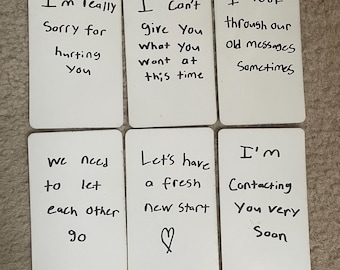 I'm really
Sorry for
hurting
you
I Can't
give You
what You
want at
this time
I look
through our
old messages
Sometimes
We need
to let
each other
go
Let's have
a fresh
new start
I'm
Contacting
You very
Soon